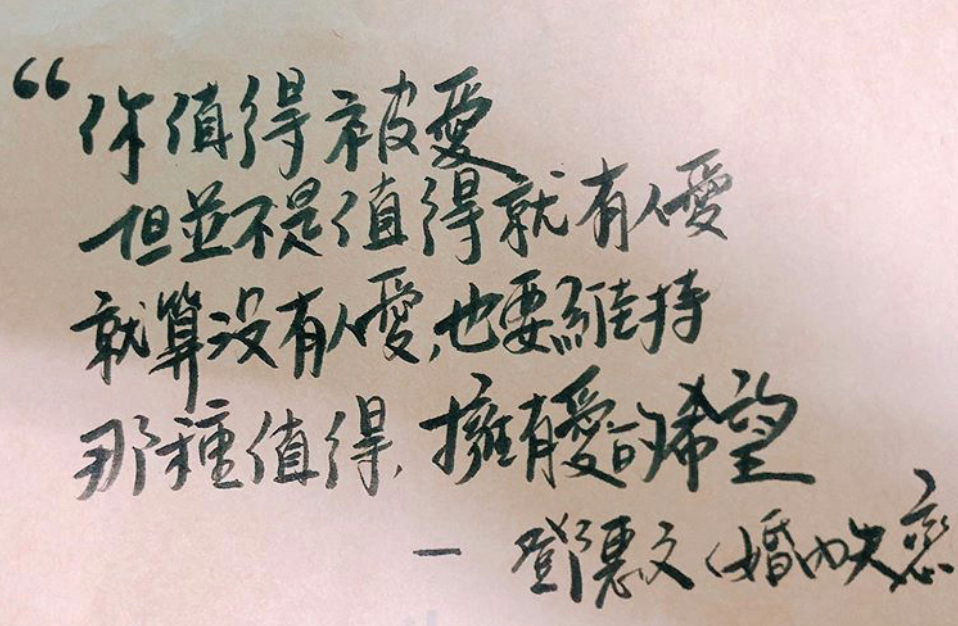 “你值得被愛
但並不是值得就有人愛
就算沒有人愛,也要維持
那種值得,擁有愛的希望
— 鄧惠文《婚內失戀